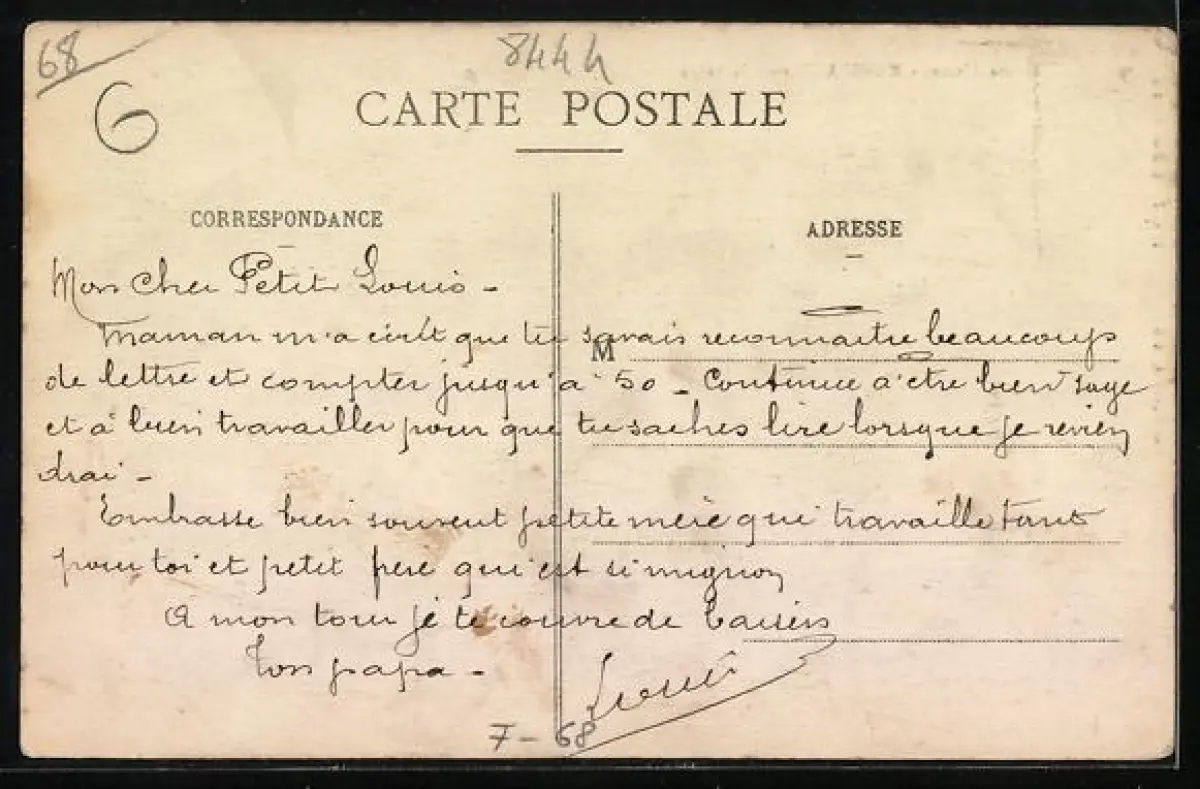 68
8444
6
CARTE POSTALE
CORRESPONDANCE
ADRESSE
M
Mon Cher Petit Louis -
Maman m'a écrit que tu savais reconnaitre beaucoups
de lettre et compter jusqu'à 50 - Continue à être bien sage
et à bien travailler pour que tu saches lire lorsque je revien
drai -
Embrasse bien souvent petite mère qui travaille tant
pour toi et petit frere qui est si mignon
A mon tour je te couvre de baisers
Ton papa -
Louis
7 - 68